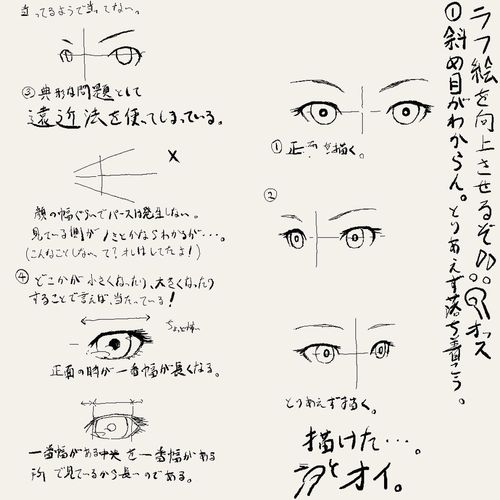 ラフ絵を向上させるぞ
オッス
①斜め目がわからん。とりあえず落ち着こう。
①正面を描く。
②
とりあえず描く。
描けた…。
オイ。
当ってるようで当ってない。
③典形な問題として
遠近法を使ってしまっている。
×
顔の幅ぐらいでパースは発生しない。
見ている側が
(こんなことしないって?オレはしてたよ!)
④どこかが小さくなったり、大きくなったり
することで言えば、当たっている!
ちょっと
正面の時が一番幅が長くなる。
一番幅がある中央を一番幅がある
所で見ているから長いのである。